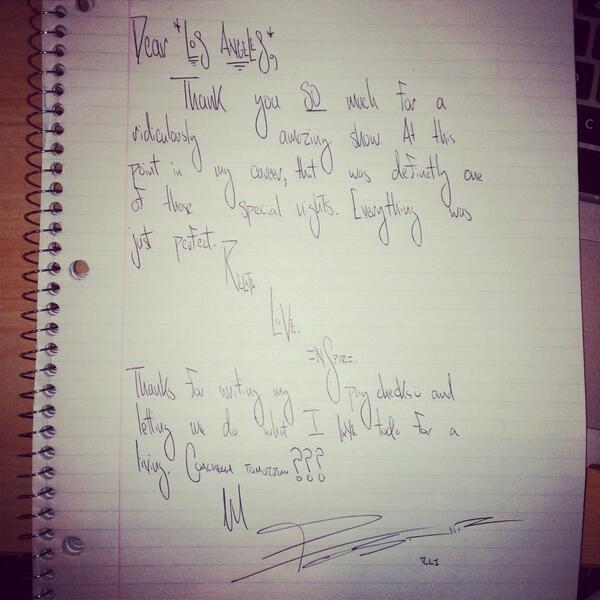 Dear *Los Angeles*,
Thank you SO much for a
ridiculously amazing show. At this
point in my career, that was definetly one
of those special nights. Everything was
just perfect.
Relate
Love.
=nSpire.
Thanks for writing my pay checks ü and
letting me do what I love todo for a
living. Coachella tomorrow???
C